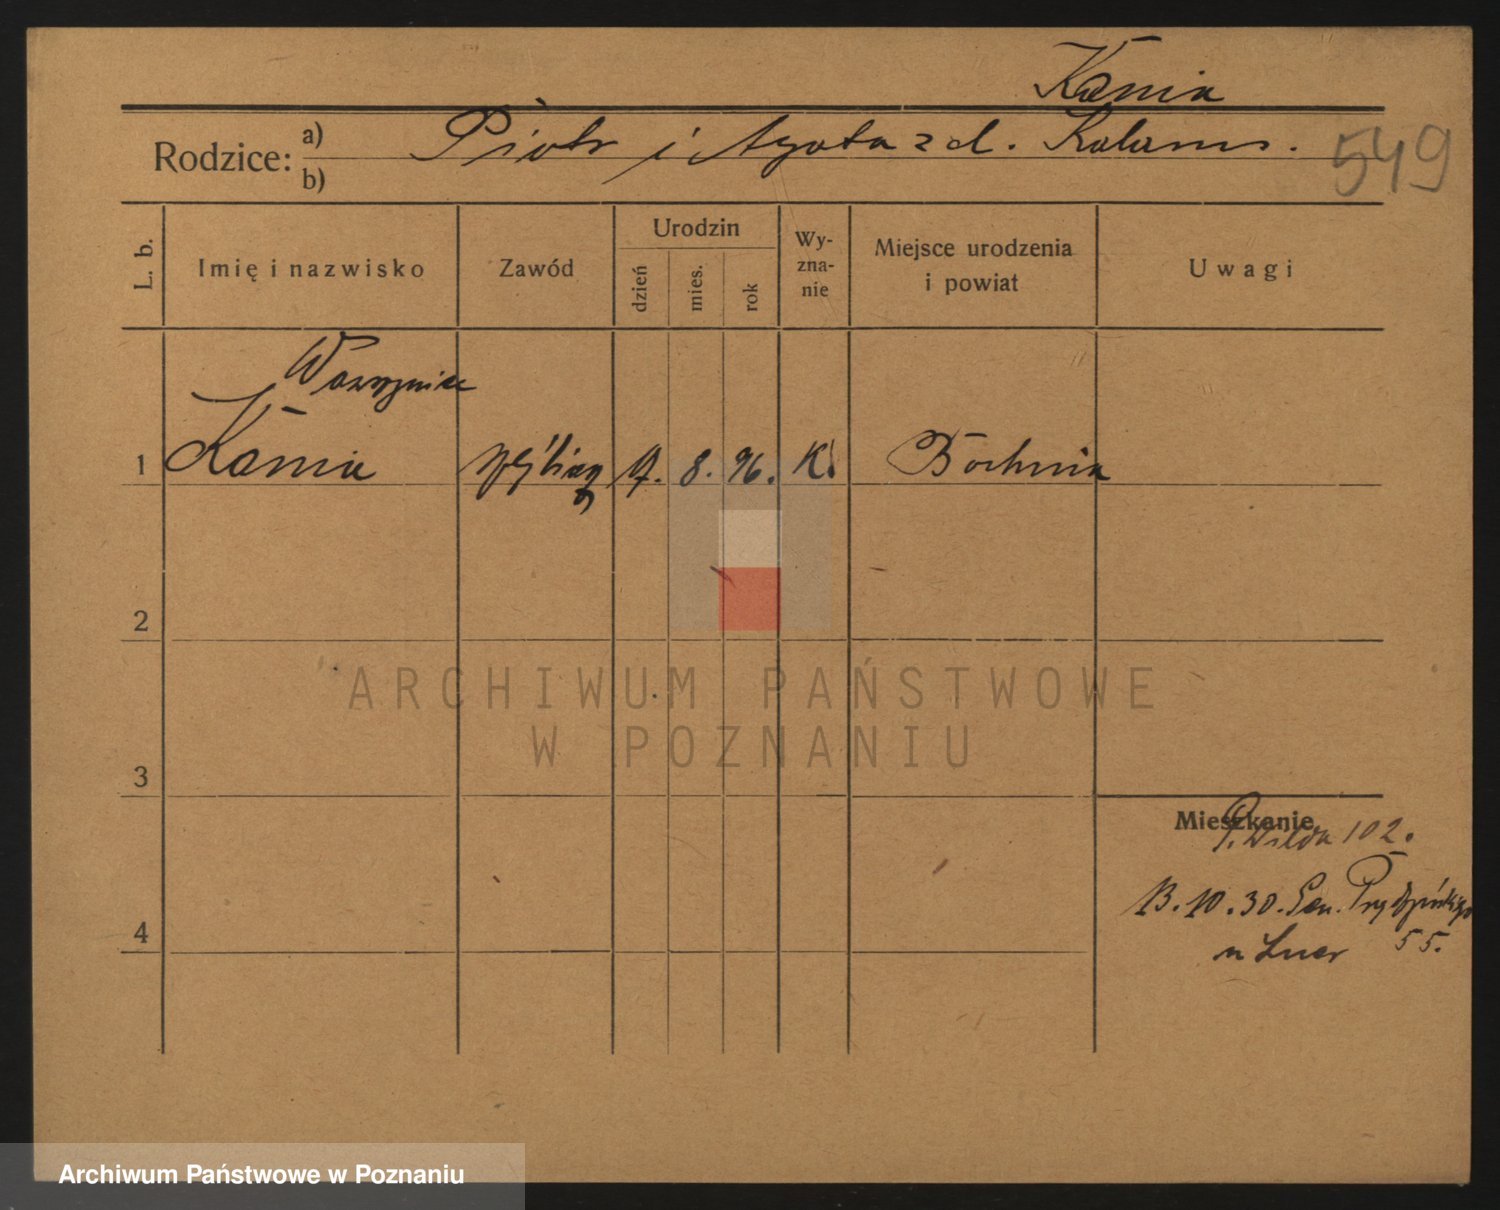 Kania
Rodzice: a) Piotr i Agata z d.
b)
549
L. b.
Imię i nazwisko
Zawód
Urodzin
dzień
mies.
rok
Wy-
zna-
nie
Miejsce urodzenia
i powiat
Uwagi
Wawrzyniec
1 Kania 9. 8. 96. K. Bochnia
2
ARCHIWUM PAŃSTWOWE
W POZNANIU
3
Mieszkanie
Wilda 102.
13.10.30. Gen. Prądzyńskiego
55.
4
Archiwum Państwowe w Poznaniu